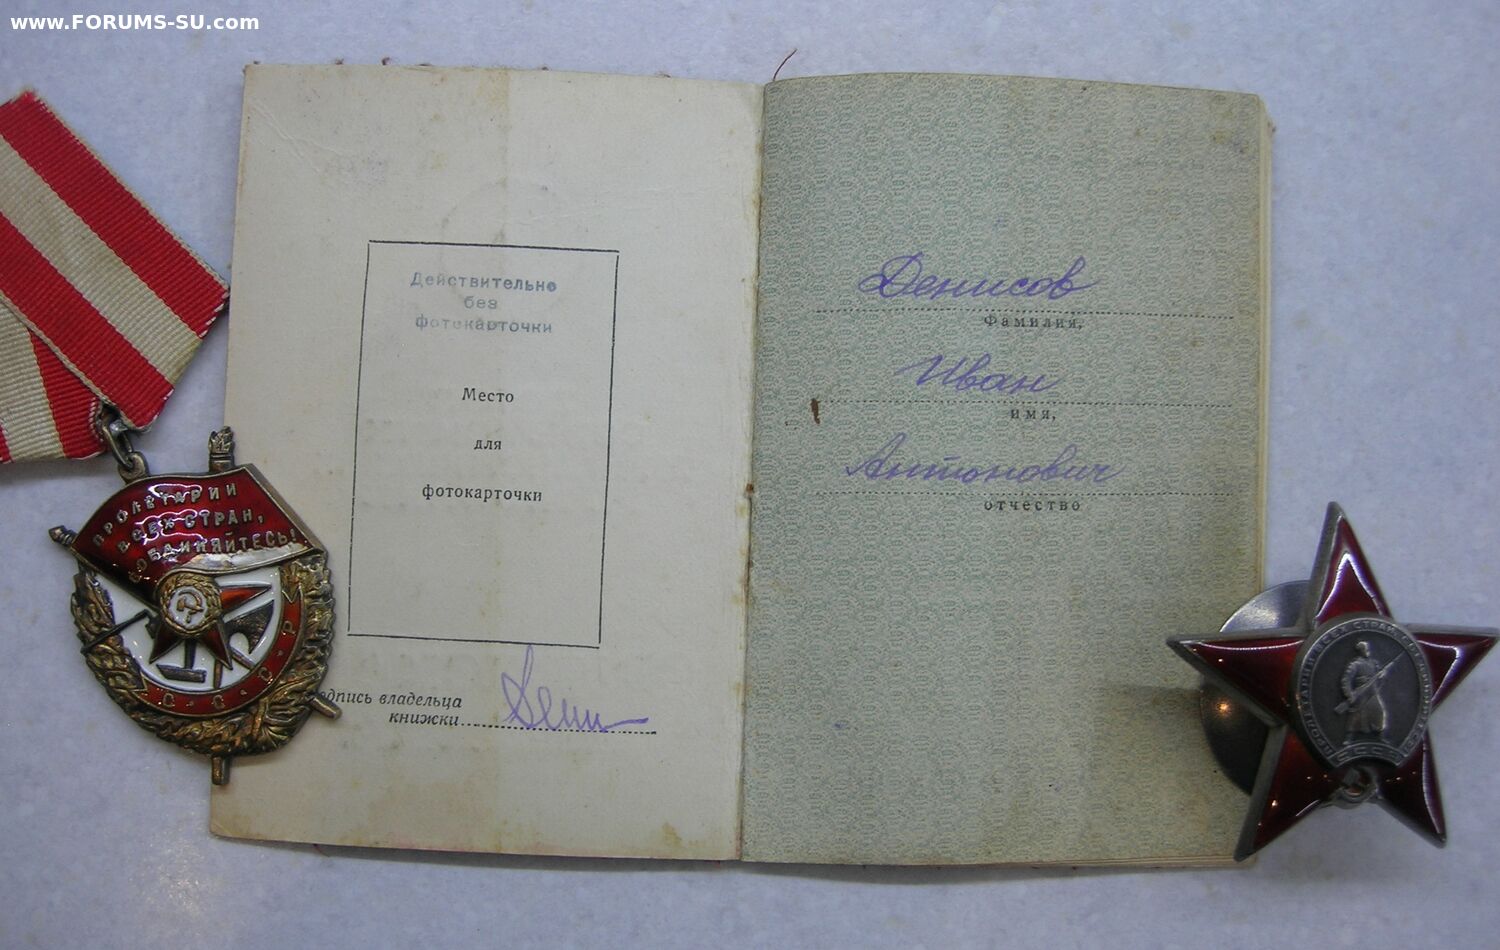 www.FORUMS-SU.com
Действительно
без
фотокарточки
Место
для
фотокарточки
подпись владельца
книжки
Денисов
Фамилия,
Иван
имя,
Антонович
отчество
ПРОЛЕТАРИИ
ВСЕХ СТРАН,
СОЕДИНЯЙТЕСЬ!
С.С.С.Р
ПРОЛЕТАРИИ ВСЕХ СТРАН, СОЕДИНЯЙТЕСЬ!
СССР